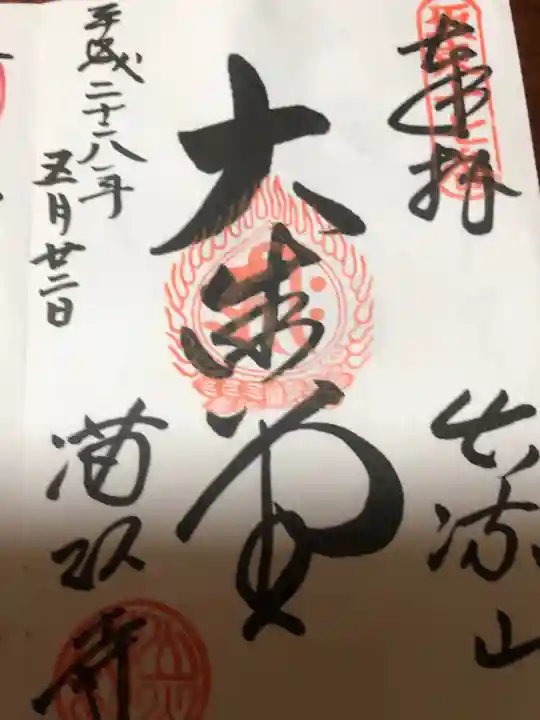 奉拝
出流山
大御堂
平成二十八年
五月廿二日
満願寺